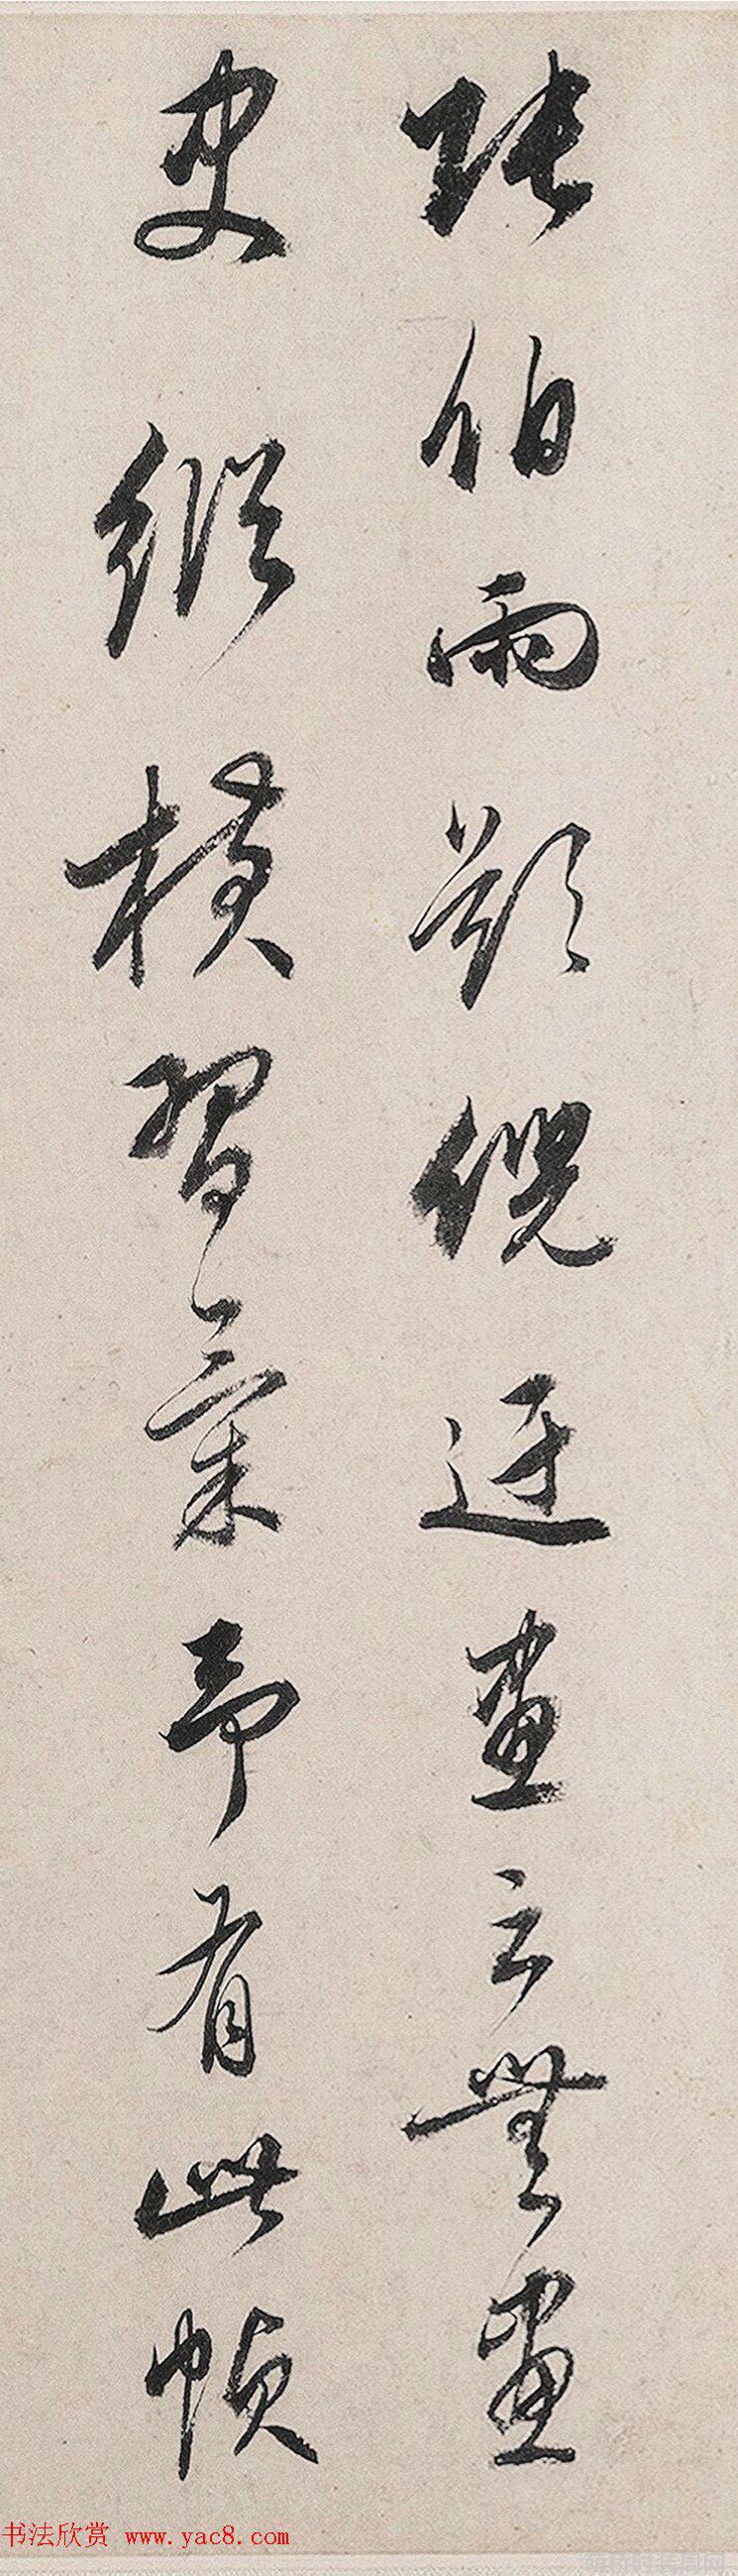 張伯雨題倪迂畫云無畫
史縱橫習氣予有此幀
书法欣赏 www.yac8.com